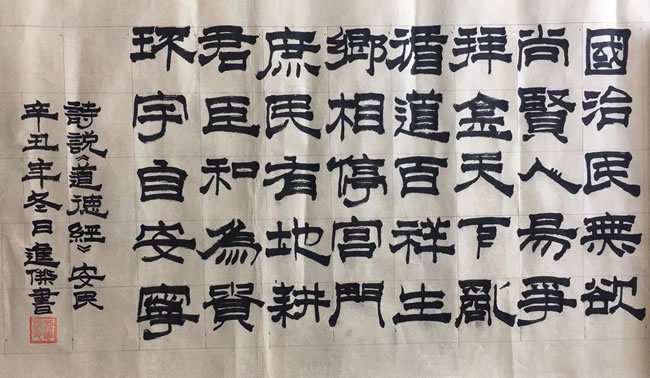 國治民無欲
尚賢人易爭
拜金天下亂
循道百祥生
鄉相停宮門
庶民有地耕
君臣和為貴
环宇自安寧
詩說《道德經》安民
辛丑年冬日進傑書